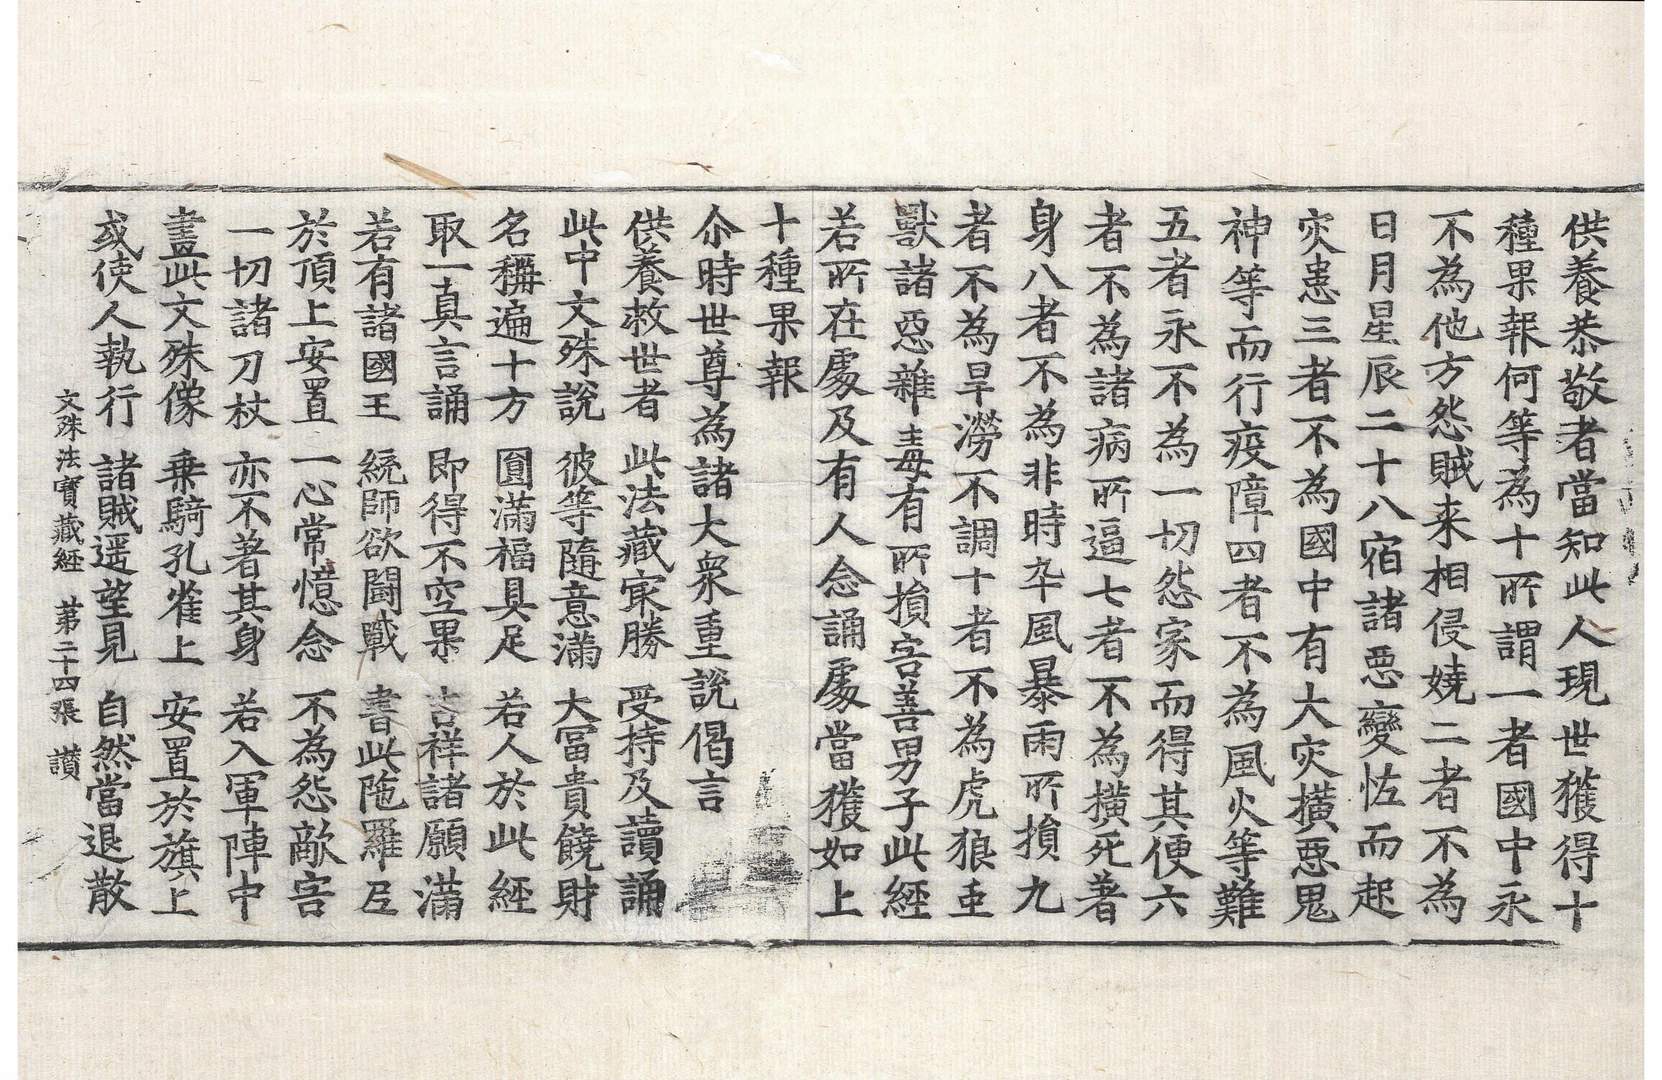 供養恭敬者當知此人現世獲得十
種果報何等為十所謂一者國中永
不為他方怨賊来相侵嬈二者不為
日月星辰二十八宿諸惡變恠而起
灾患三者不為國中有大灾撗惡鬼
神等而行疫障四者不為風火等難
五者永不為一切怨家而得其便六
者不為諸病所逼七者不為撗死著
身八者不為非時卒風暴雨所損九
者不為旱澇不調十者不為虎狼䖝
獸諸惡雜毒有所損害善男子此經
若所在處及有人念誦處當獲如上
十種果報
尒時世尊為諸大衆重說偈言
供養救世者　此法藏㝡勝　受持及讀誦
此中文殊說　彼等隨意滿　大富貴饒財
名稱遍十方　圓滿福具足　若人於此經
取一真言誦　即得不空果　吉祥諸願滿
若有諸國王　統師欲鬪戰　書此陁羅尼
於頂上安置　一心常憶念　不為怨敵害
一切諸刀杖　亦不著其身　若入軍陣中
畫此文殊像　乗騎孔雀上　安置於旗上
或使人執行　諸賊遥望見　自然當退散
文殊法寶藏經　第二十四張　讃